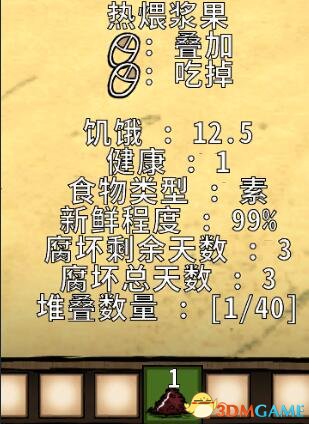 热煨浆果
: 叠加
: 吃掉
饥饿 : 12.5
健康 : 1
食物类型 : 素
新鲜程度 : 99%
腐坏剩余天数 : 3
腐坏总天数 : 3
堆叠数量 : [1/40]
1
3DMGAME